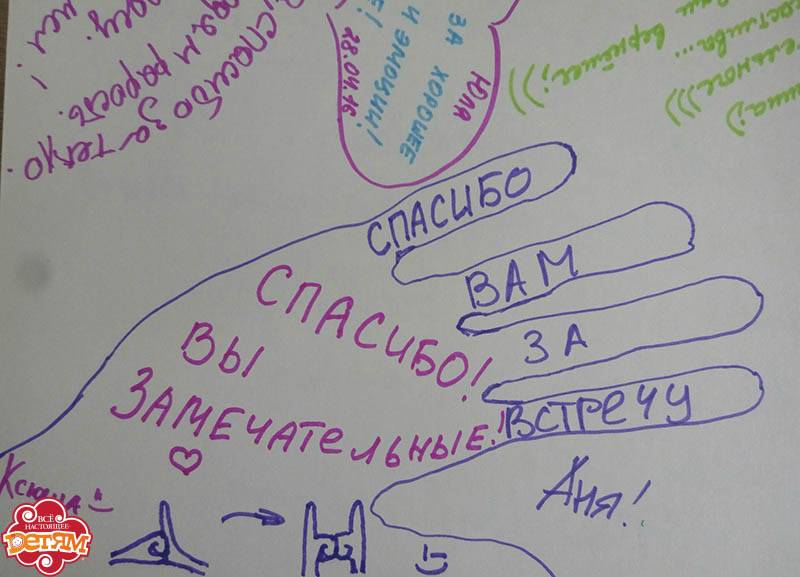 спасибо за тепло.
Юля
за хорошее
и эмоции!
28.04.16
СПАСИБО
ВАМ
ЗА
ВСТРЕЧУ
СПАСИБО!
ВЫ
ЗАМЕЧАТЕЛЬНЫЕ!
Ксюша
Аня!
ВСЁ
НАСТОЯЩЕЕ
ДЕТЯМ